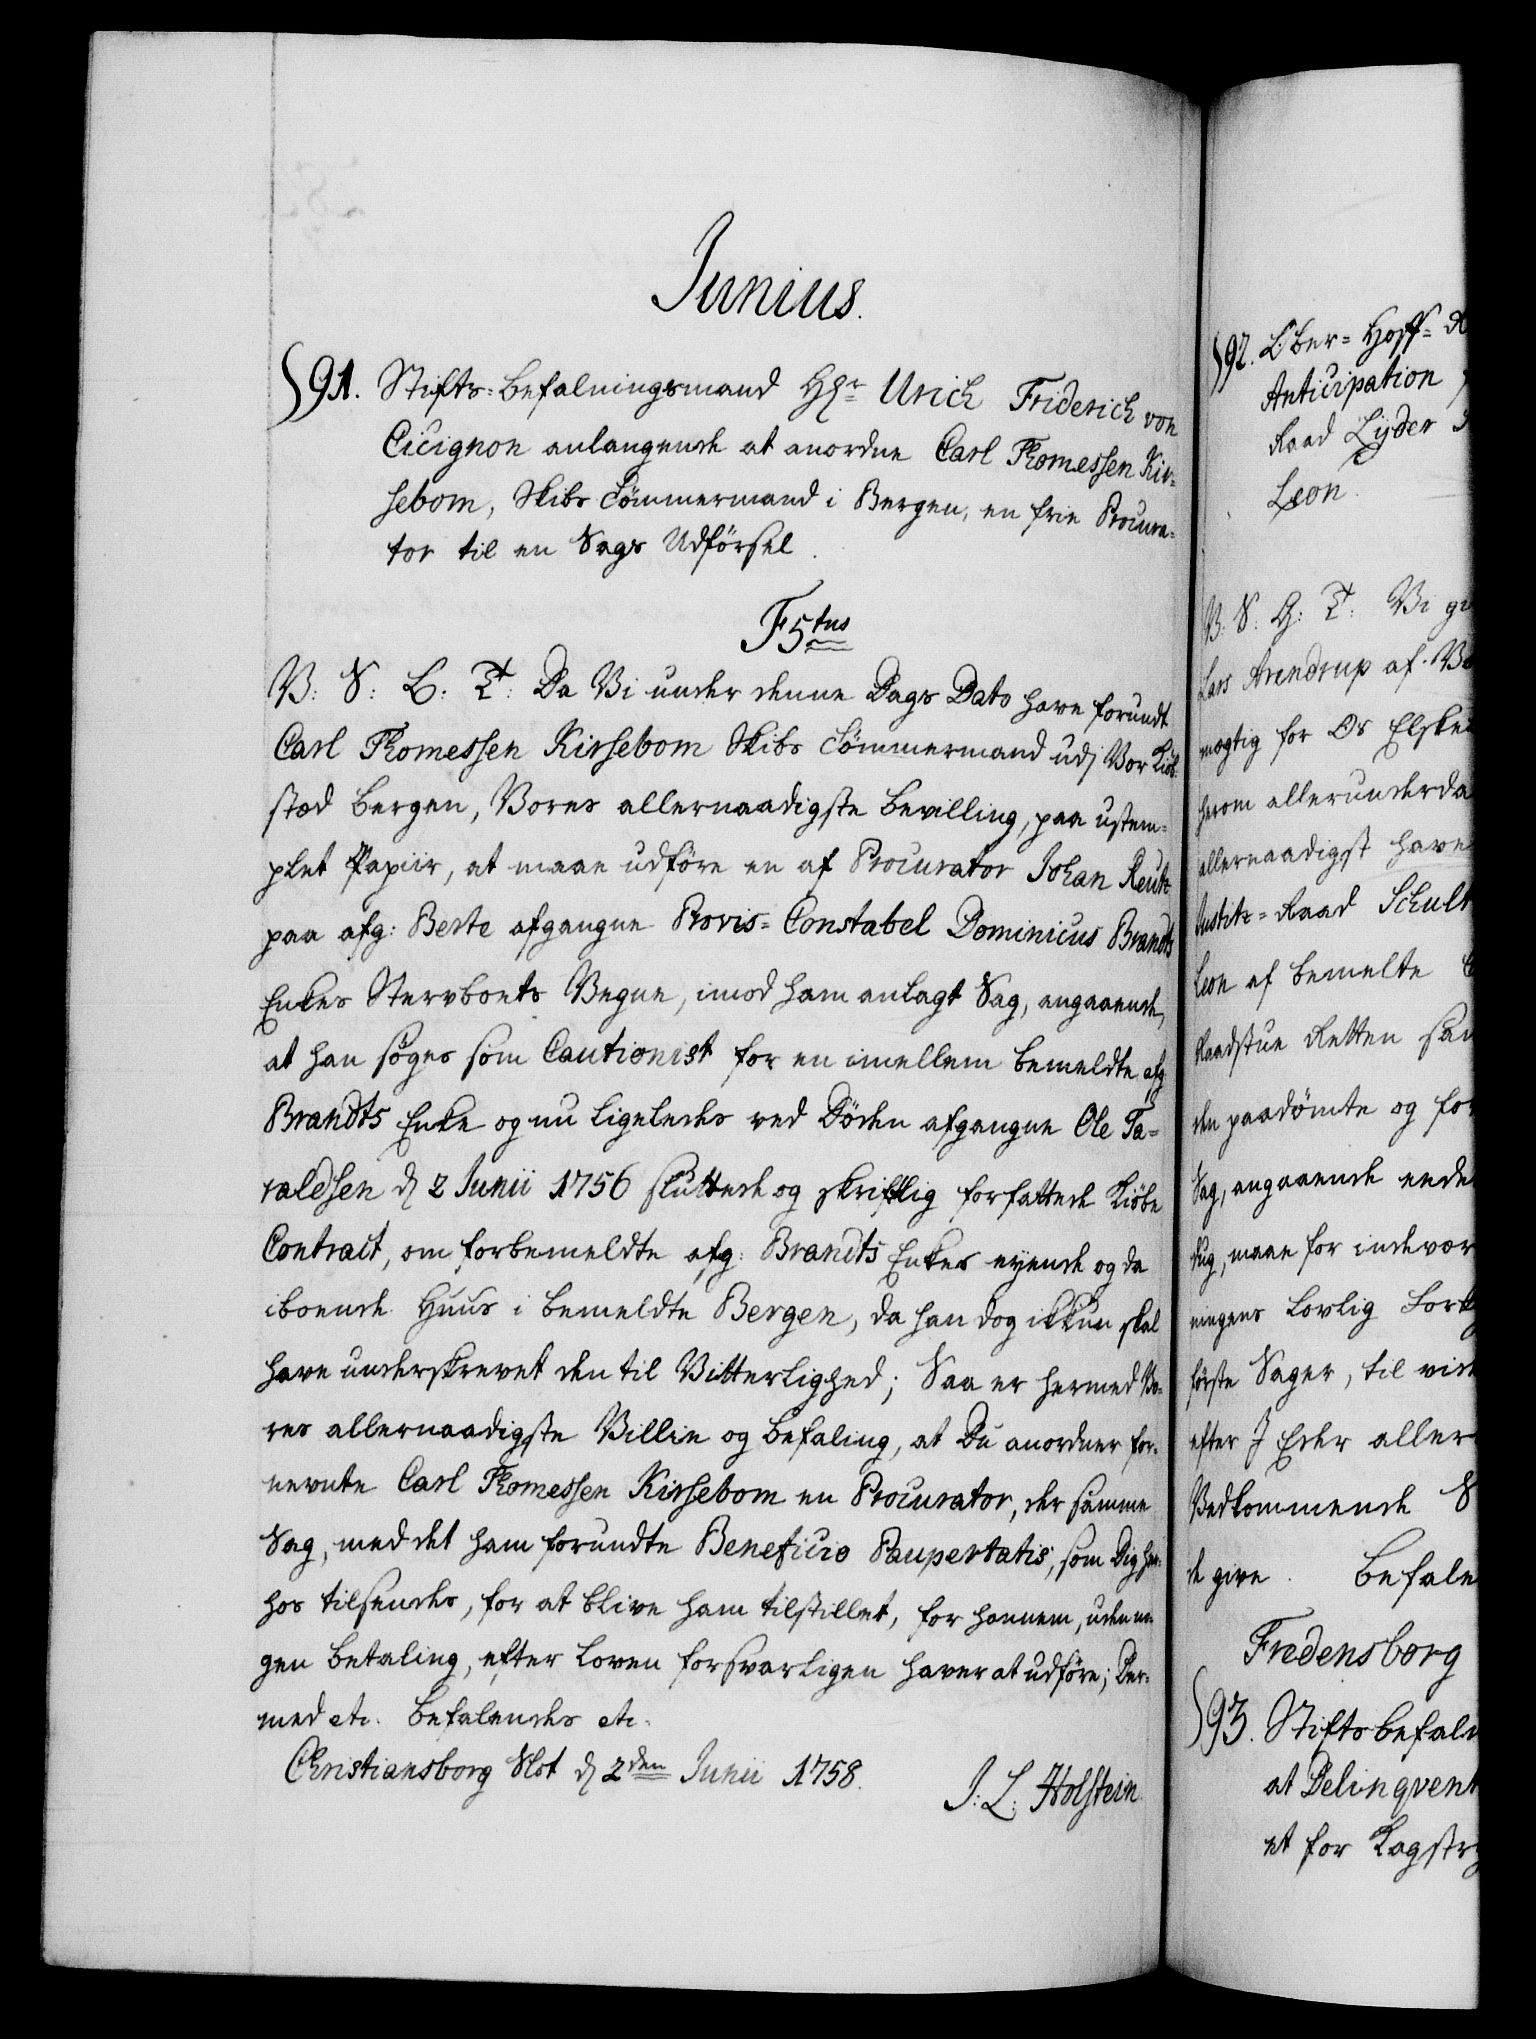 Junius.
§91. Stifts-Befalningsmand Hr Urich Friderich von
Cicignon anlangende at anordne Carl Thomessen Kir-
sebom, Skibs Tömmermand i Bergen, en frie Procura-
tor til en Sags Udförsel.
F5tus
V: S: G: T: Da Vi under denne Dags Dato have forundt
Carl Thomessen Kirsebom Skibs Tömmermand udj Vor Kiöb-
stæd Bergen, Vores allernaadigste Bevilling, paa ustem-
plet Papiir, at maae udföre en af Procurator Johan Reutz
paa afg: Berte afgangne Provis-Constabel Dominicus Brandts
Enkes Stervboets Vegne, imod ham anlagt Sag, angaaende,
at han söges som Cautionist for en imellem bemeldte afg
Brandts Enke og nu ligeledes ved Döden afgangne Ole Ta-
raldsen d 2 Junii 1756 sluttede og skriftlig forfattede Kiöbe
Contract, om forbemeldte afg: Brandts Enkes eyende og da
iboende Huus i bemeldte Bergen, da han dog ikkun skal
have underskrevet den til Vitterlighed; Saa er hermed Vo-
res allernaadigste Villie og Befaling, at Du anordner for-
nevnte Carl Thomessen Kirsebom en Procurator, der samme
Sag, med det ham forundte Beneficio Paupertatis, som Dig her-
hos tilsendes, for at blive ham tilstillet, for hannem, uden no-
gen Betaling, efter Loven forsvarligen haver at udföre; Der-
med etc. Befalendes etc.
Christiansborg Slot d 2den Junii 1758.
J: L: Holstein
§92. Ober-Hoff-
Anticipation
Raad Lyder
Leon.
V: S: G: T: Vi
Lars Arendrup af
mægtig for Os Elske
herom allerunderda
allernaadigst have
Justitz-Raad Schult
Leon af bemelte
Raadstue Retten
den paadömte og for
Sag, angaaende
maae for indevær
ningens lovlig
förste Sager, til
efter I Eder aller
Vedkommende
de give. Befale
Fredensborg
§93. Stiftsbefal
at Delinqvent
et for Kagstry